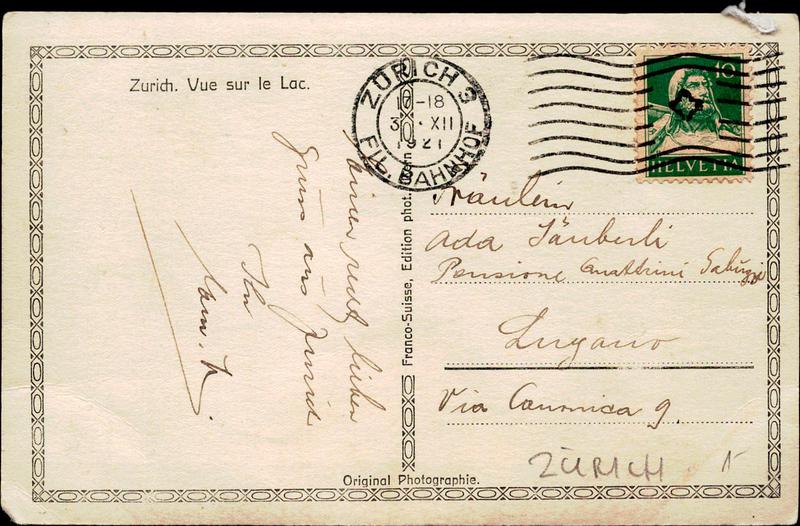 Zurich. Vue sur le Lac.
ZÜRICH 3
17-18
3 · XII
1921
FIL. BAHNHOF
10
HELVETIA
einen recht lieben
Gruss aus Zürich
Ihr
Fräulein
Ada Täuberli
Pensione Quattrini
Lugano
Via Canonica 9.
Franco-Suisse, Edition phot.
Original Photographie.
ZÜRICH